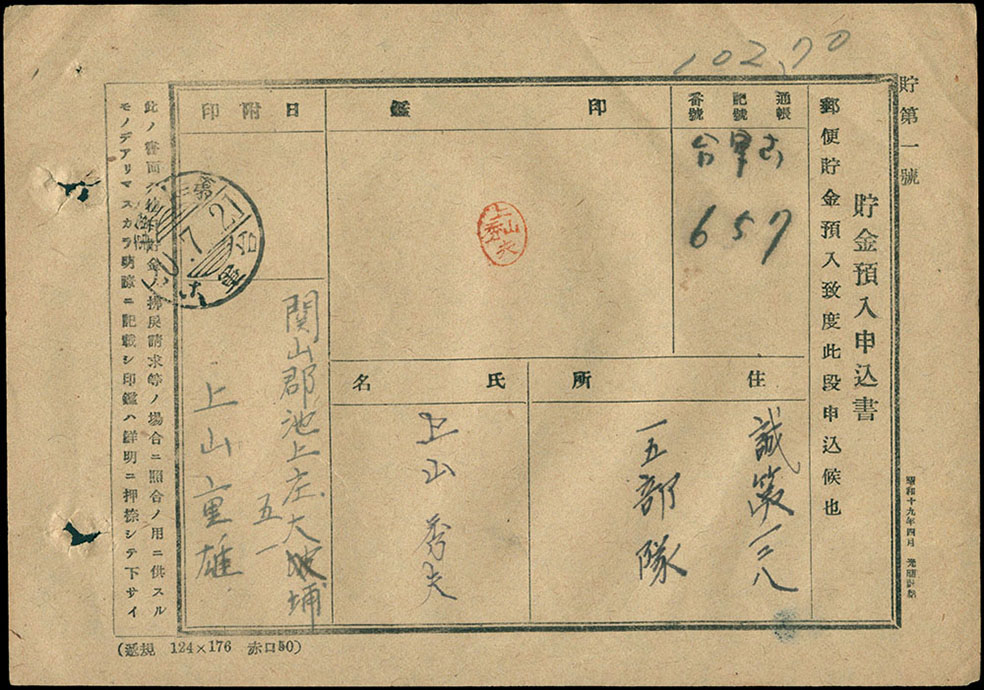 102,70
貯第一號
貯金預入申込書
郵便貯金預入致度此段申込候也
昭和十九年四月
通帳
記號
番號
657
印鑑
上山秀夫
日附印
7.21
住所
誠第一二八
一五部隊
氏名
上山秀夫
関山郡池上庄大坡埔
五一
上山重雄
此ノ書面ハ後日貯金ノ拂戻請求等ノ場合ニ照合ノ用ニ供スル
モノデアリマスカラ明瞭ニ記載シ印鑑ハ鮮明ニ押捺シテ下サイ
(遞規 124×176 赤口50)